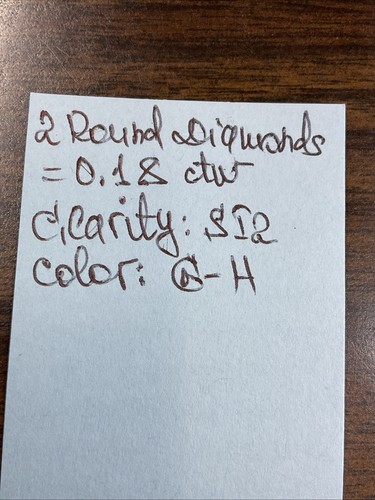 2 Round Diamonds
= 0.18 ctw
Clarity: SI2
Color: G-H